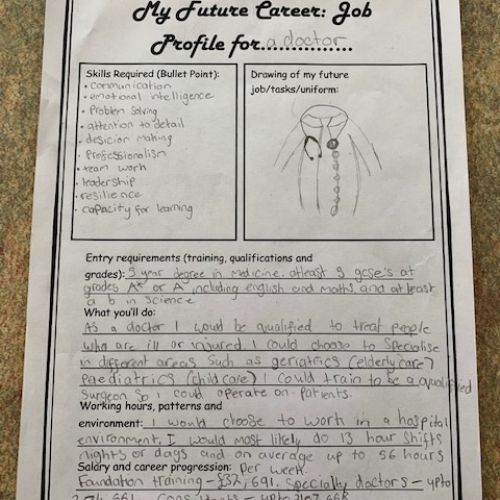 My Future Career: Job
Profile for...a doctor...............
Skills Required (Bullet Point):
• communication
• emotional intelligence
• Problem Solving
• attention to detail
• desicion making
• professionalism
• team work
• leadership
• resilience
• capacity for learning
Drawing of my future
job/tasks/uniform:
Entry requirements (training, qualifications and
grades): 5 year degree in medicine. atleast 5 gcse's at
grades A* or A including english and maths, and at least
a b in science
What you'll do:
As a doctor I would be qualified to treat people
who are ill or injured. I could choose to specialise
in different areas such as geriatrics (elderly care)
paediatrics (child care) I could train to be a qualified
surgeon so I could operate on patients.
Working hours, patterns and
environment: I would choose to work in a hospital
environment, I would most likely do 13 hour shifts
nights or days and on average up to 56 hours
Salary and career progression: Per week.
Foundation training - £32,691. Specialty doctors - upto